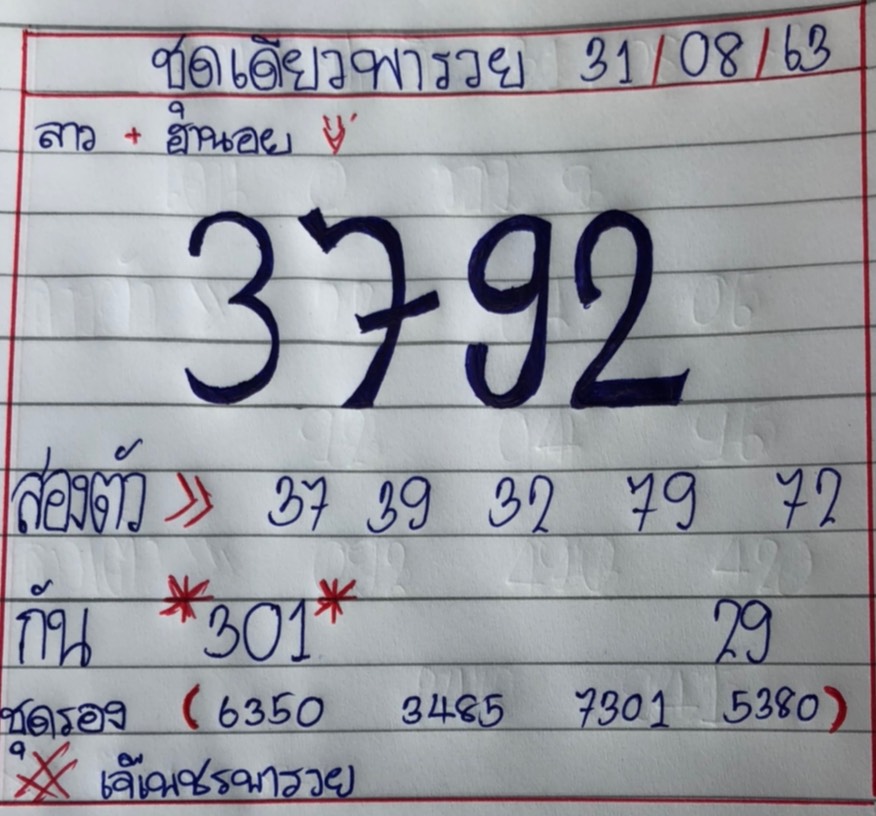 ชุดเดียวพารวย 31/08/63
ลาว + ฮานอย
3792
สองตัว >> 37 39 32 79 72
กัน *301* 29
ชุดรอง (6350 3485 7301 5380)
เจ๊เพชรพารวย